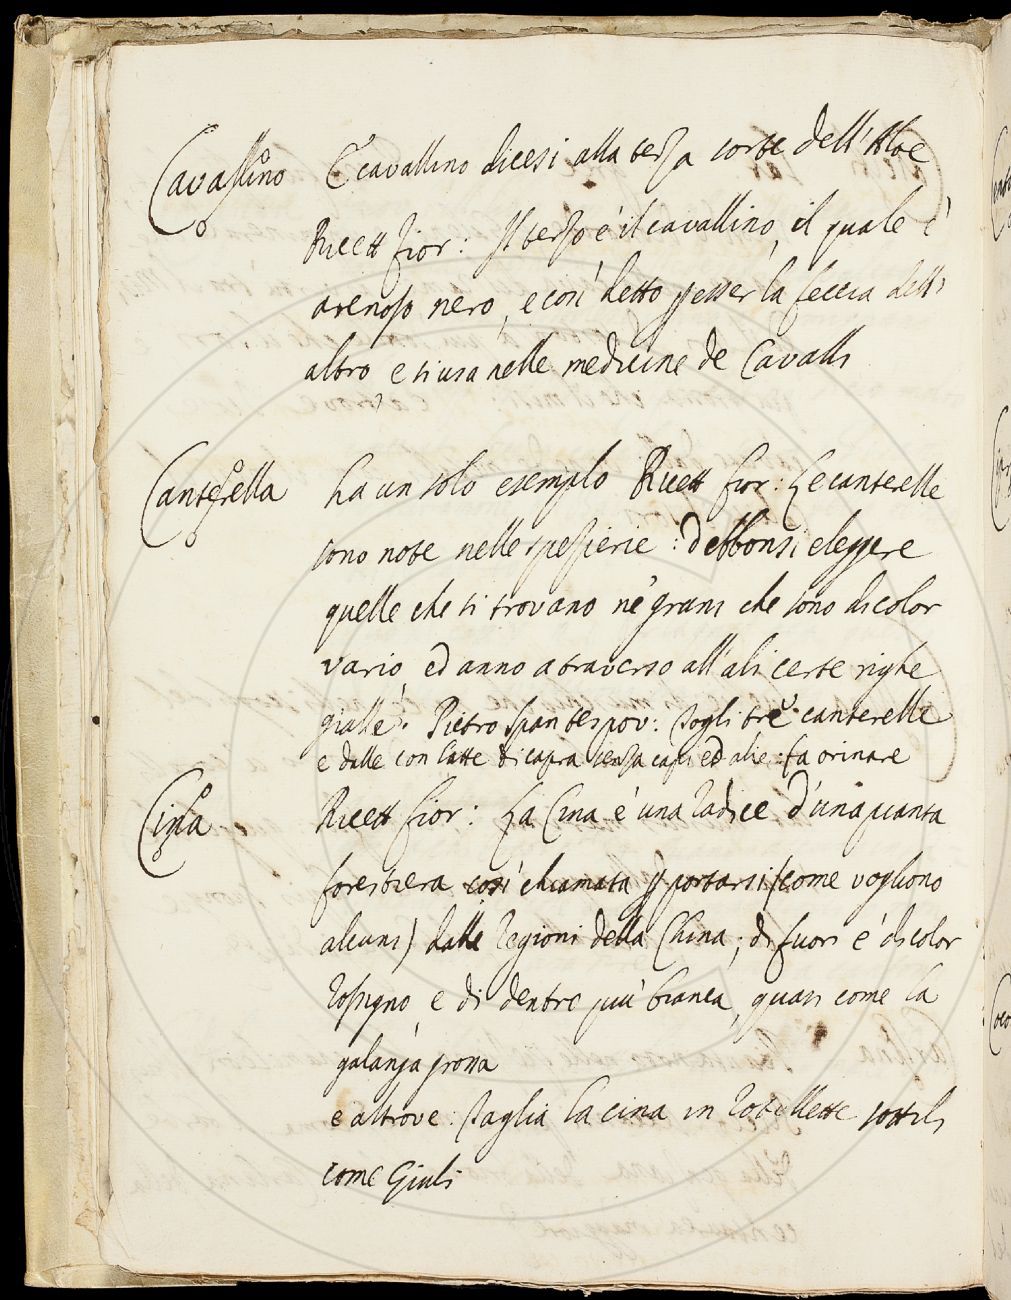 Cavallino E cavallino dicesi alla terza sorte dell'Aloe
Ricett fior: Il terzo è il cavallino, il quale è
arenoso nero, e così detto p esser la feccia dell'
altro e si usa nelle medicine de Cavalli
Canterella ha un solo esemplo Ricett fior: Le canterelle
sono note nelle spezierie: debbonsi eleggere
quelle che si trovano ne' grani che sono di color
vario, ed anno atraverso all'ali certe righe
gialle. Pietro Span tes pov: Togli tre canterelle
e dalle con latte di capra senza capi ed alie: fa orinare
Cina Ricett fior: La Cina è una radice d'una pianta
forestiera così chiamata p portarsi (come vogliono
alcuni) dalle regioni della China; di fuori è di color
rossigno e di dentro più bianca, quasi come la
galanga grossa
e altrove: Taglia la cina in rotellette sottili
come Giuli